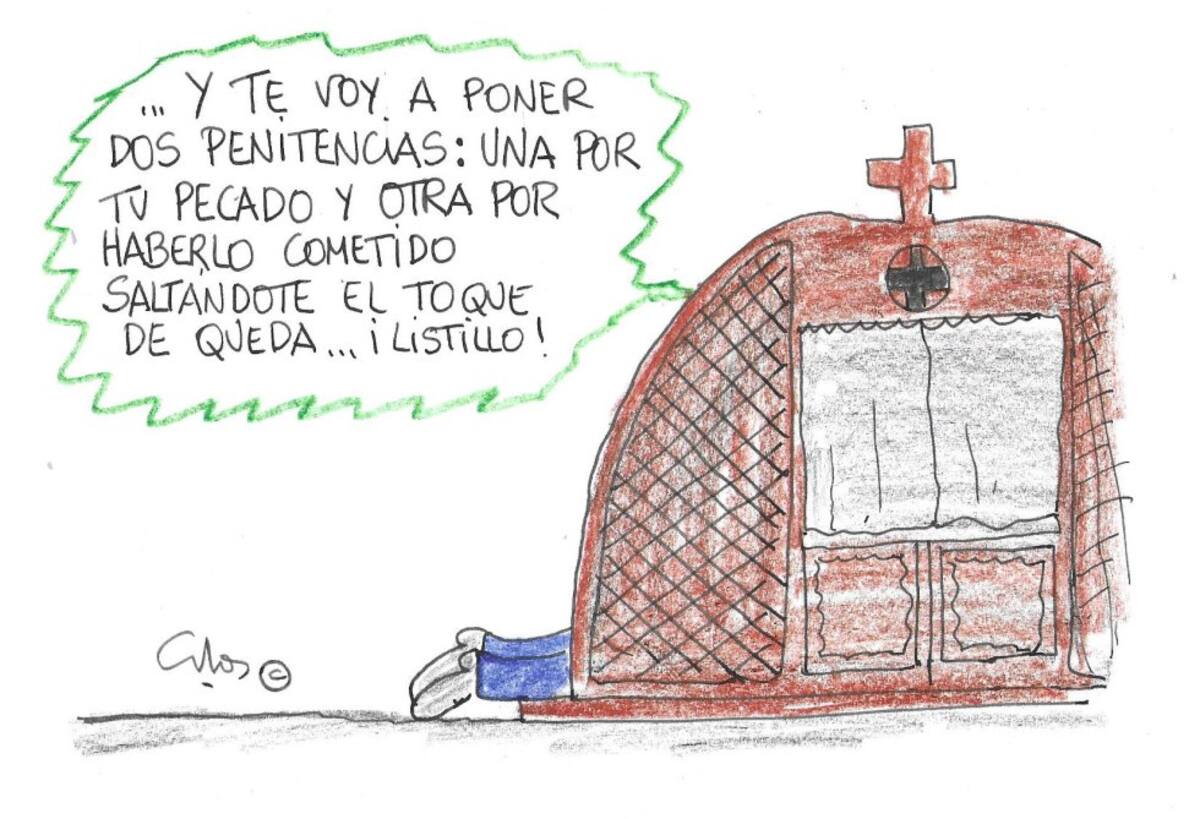 ... Y TE VOY A PONER
DOS PENITENCIAS: UNA POR
TU PECADO Y OTRA POR
HABERLO COMETIDO
SALTÁNDOTE EL TOQUE
DE QUEDA... ¡LISTILLO!
©